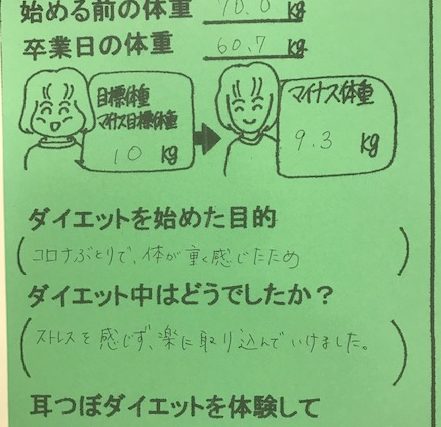 始める前の体重 70.0 kg
卒業日の体重 60.7 kg
目標体重
マイナス目標体重
10 kg
マイナス体重
9.3 kg
ダイエットを始めた目的
(コロナぶとりで、体が重く感じたため)
ダイエット中はどうでしたか?
(ストレスを感じず、楽に取り込んでいけました。)
耳つぼダイエットを体験して